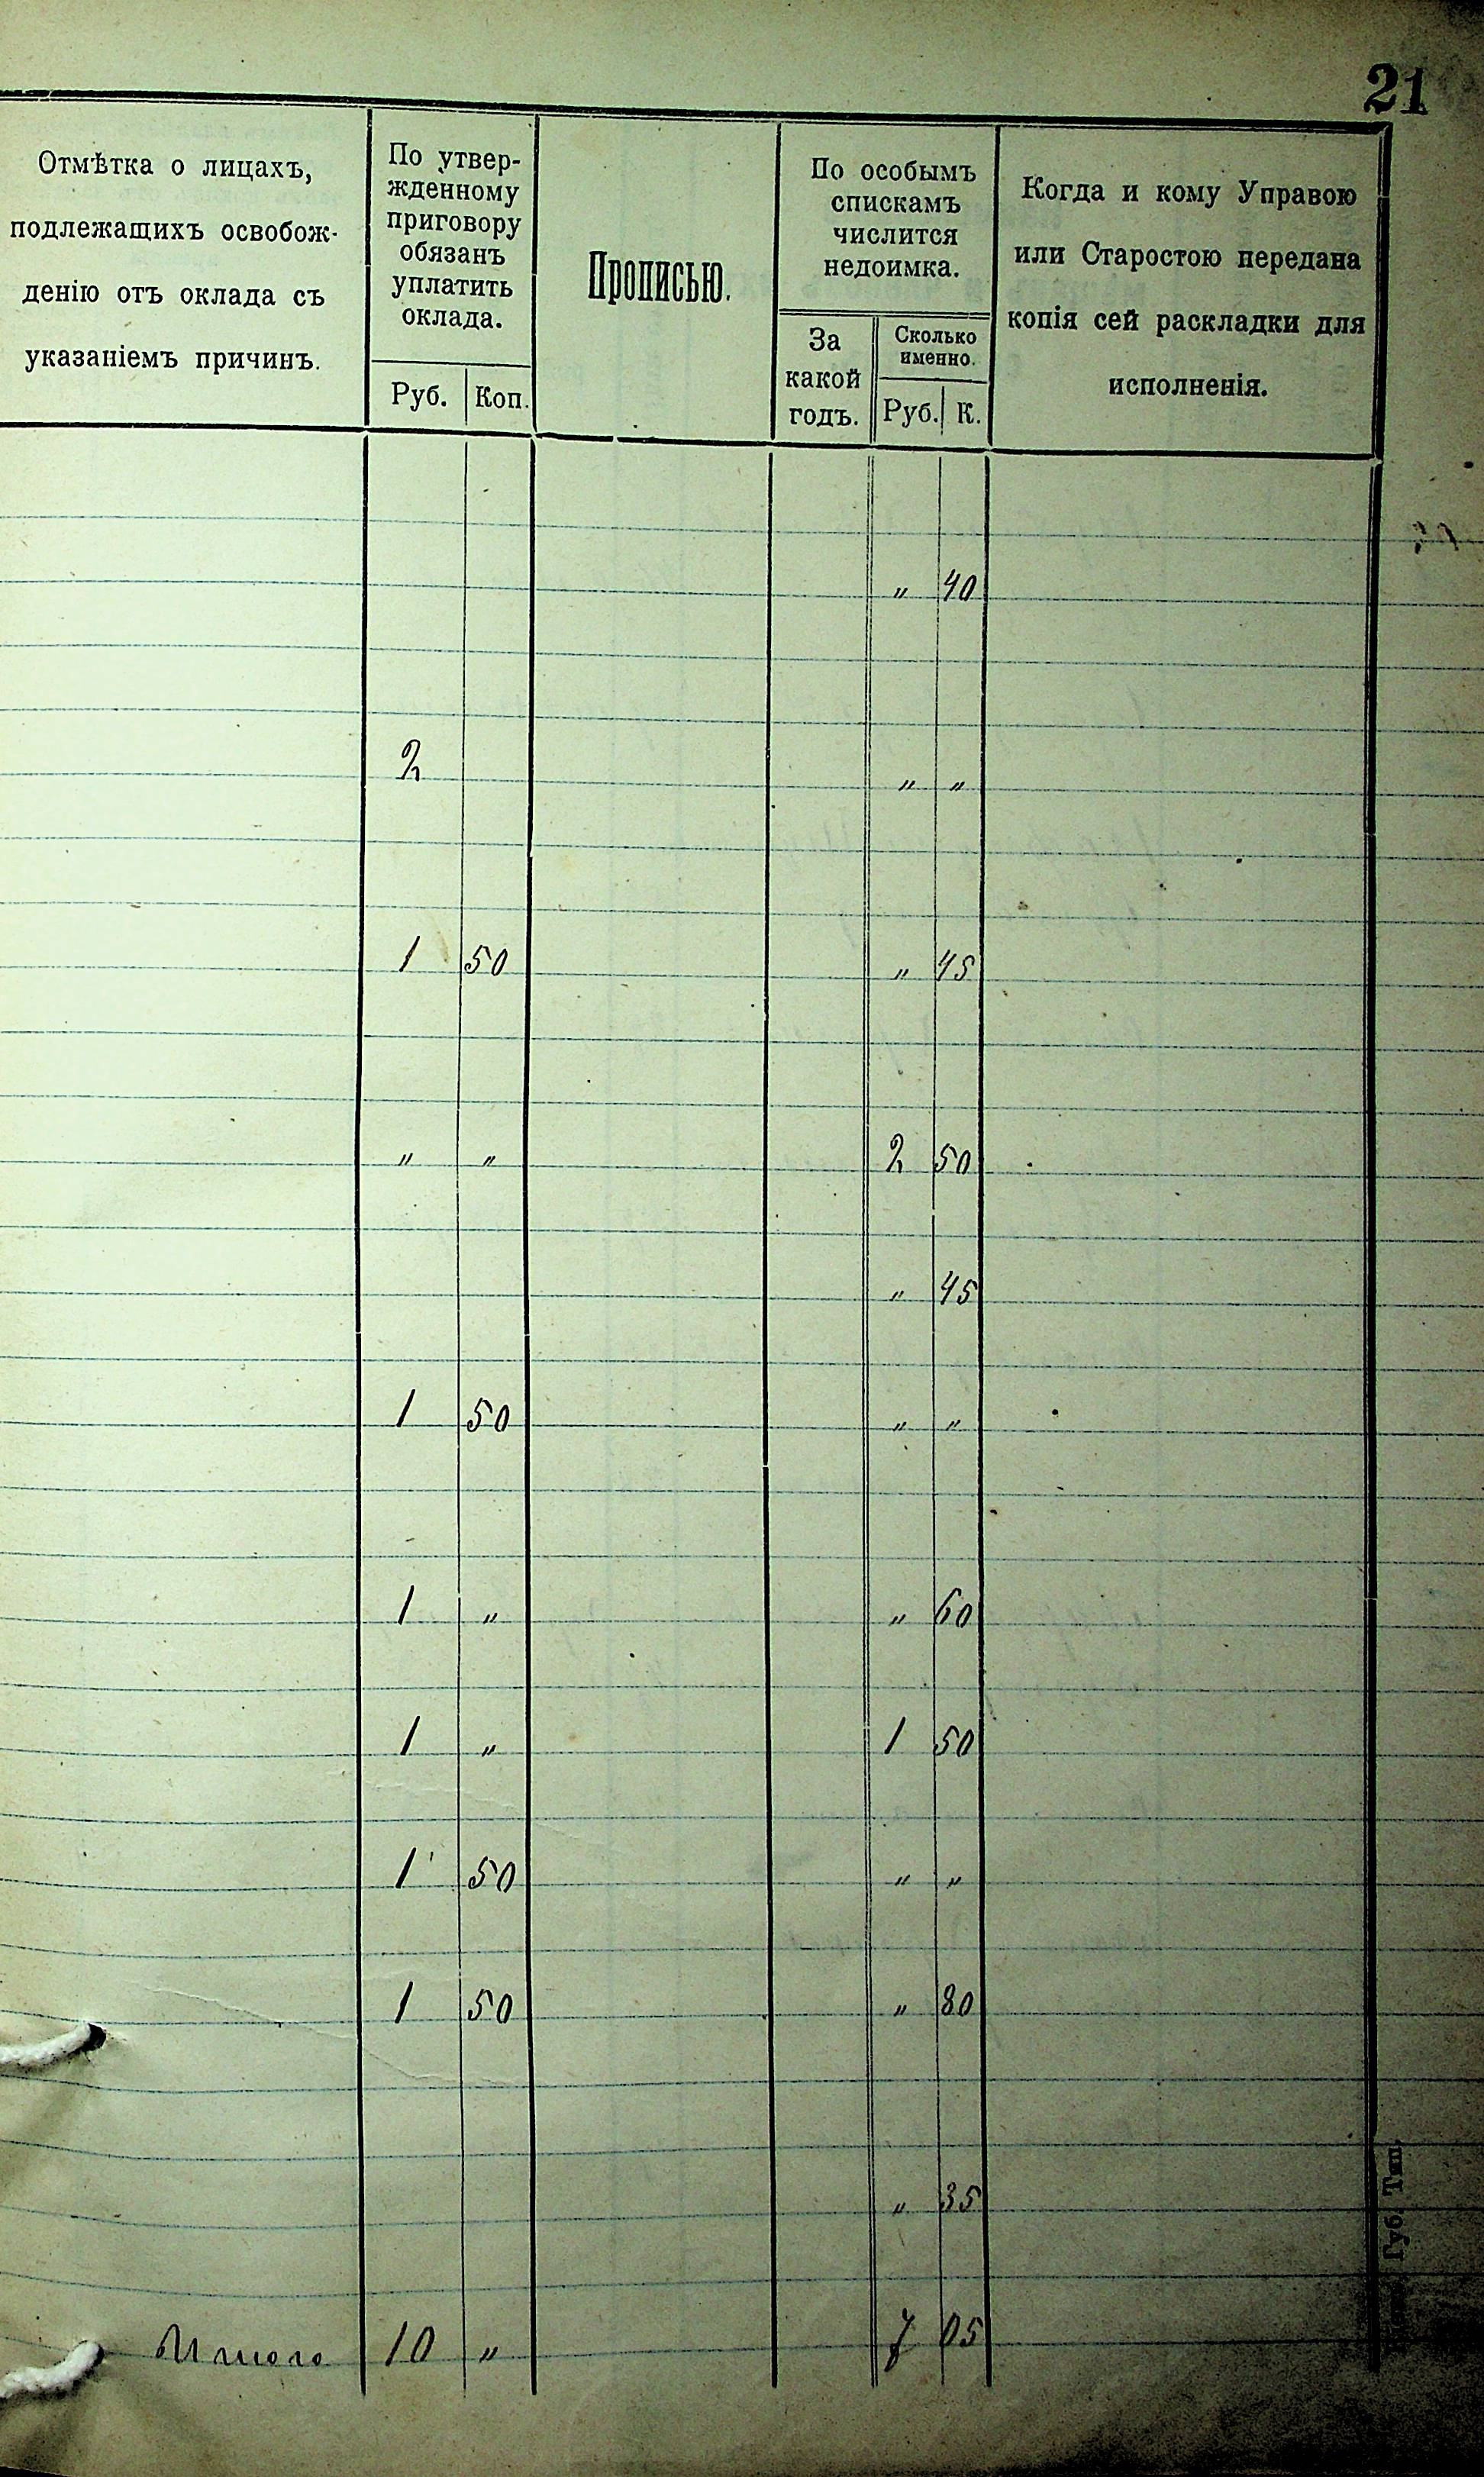 21
Отмѣтка о лицахъ,
подлежащихъ освобож-
денію отъ оклада съ
указаніемъ причинъ.
По утвер-
жденному
приговору
обязанъ
уплатить
оклада.
Руб. Коп.
Прописью.
По особымъ
спискамъ
числится
недоимка.
За
какой
годъ.
Сколько
именно.
Руб. К.
Когда и кому Управою
или Старостою передана
копія сей раскладки для
исполненія.
" 40
2 " "
1 50 " 45
" " 2 50
" 45
1 50 " "
1 " " 60
1 " 1 50
1 50 " "
1 50 " 80
" 35
Итого 10 " 7 05
Губ. Тип.